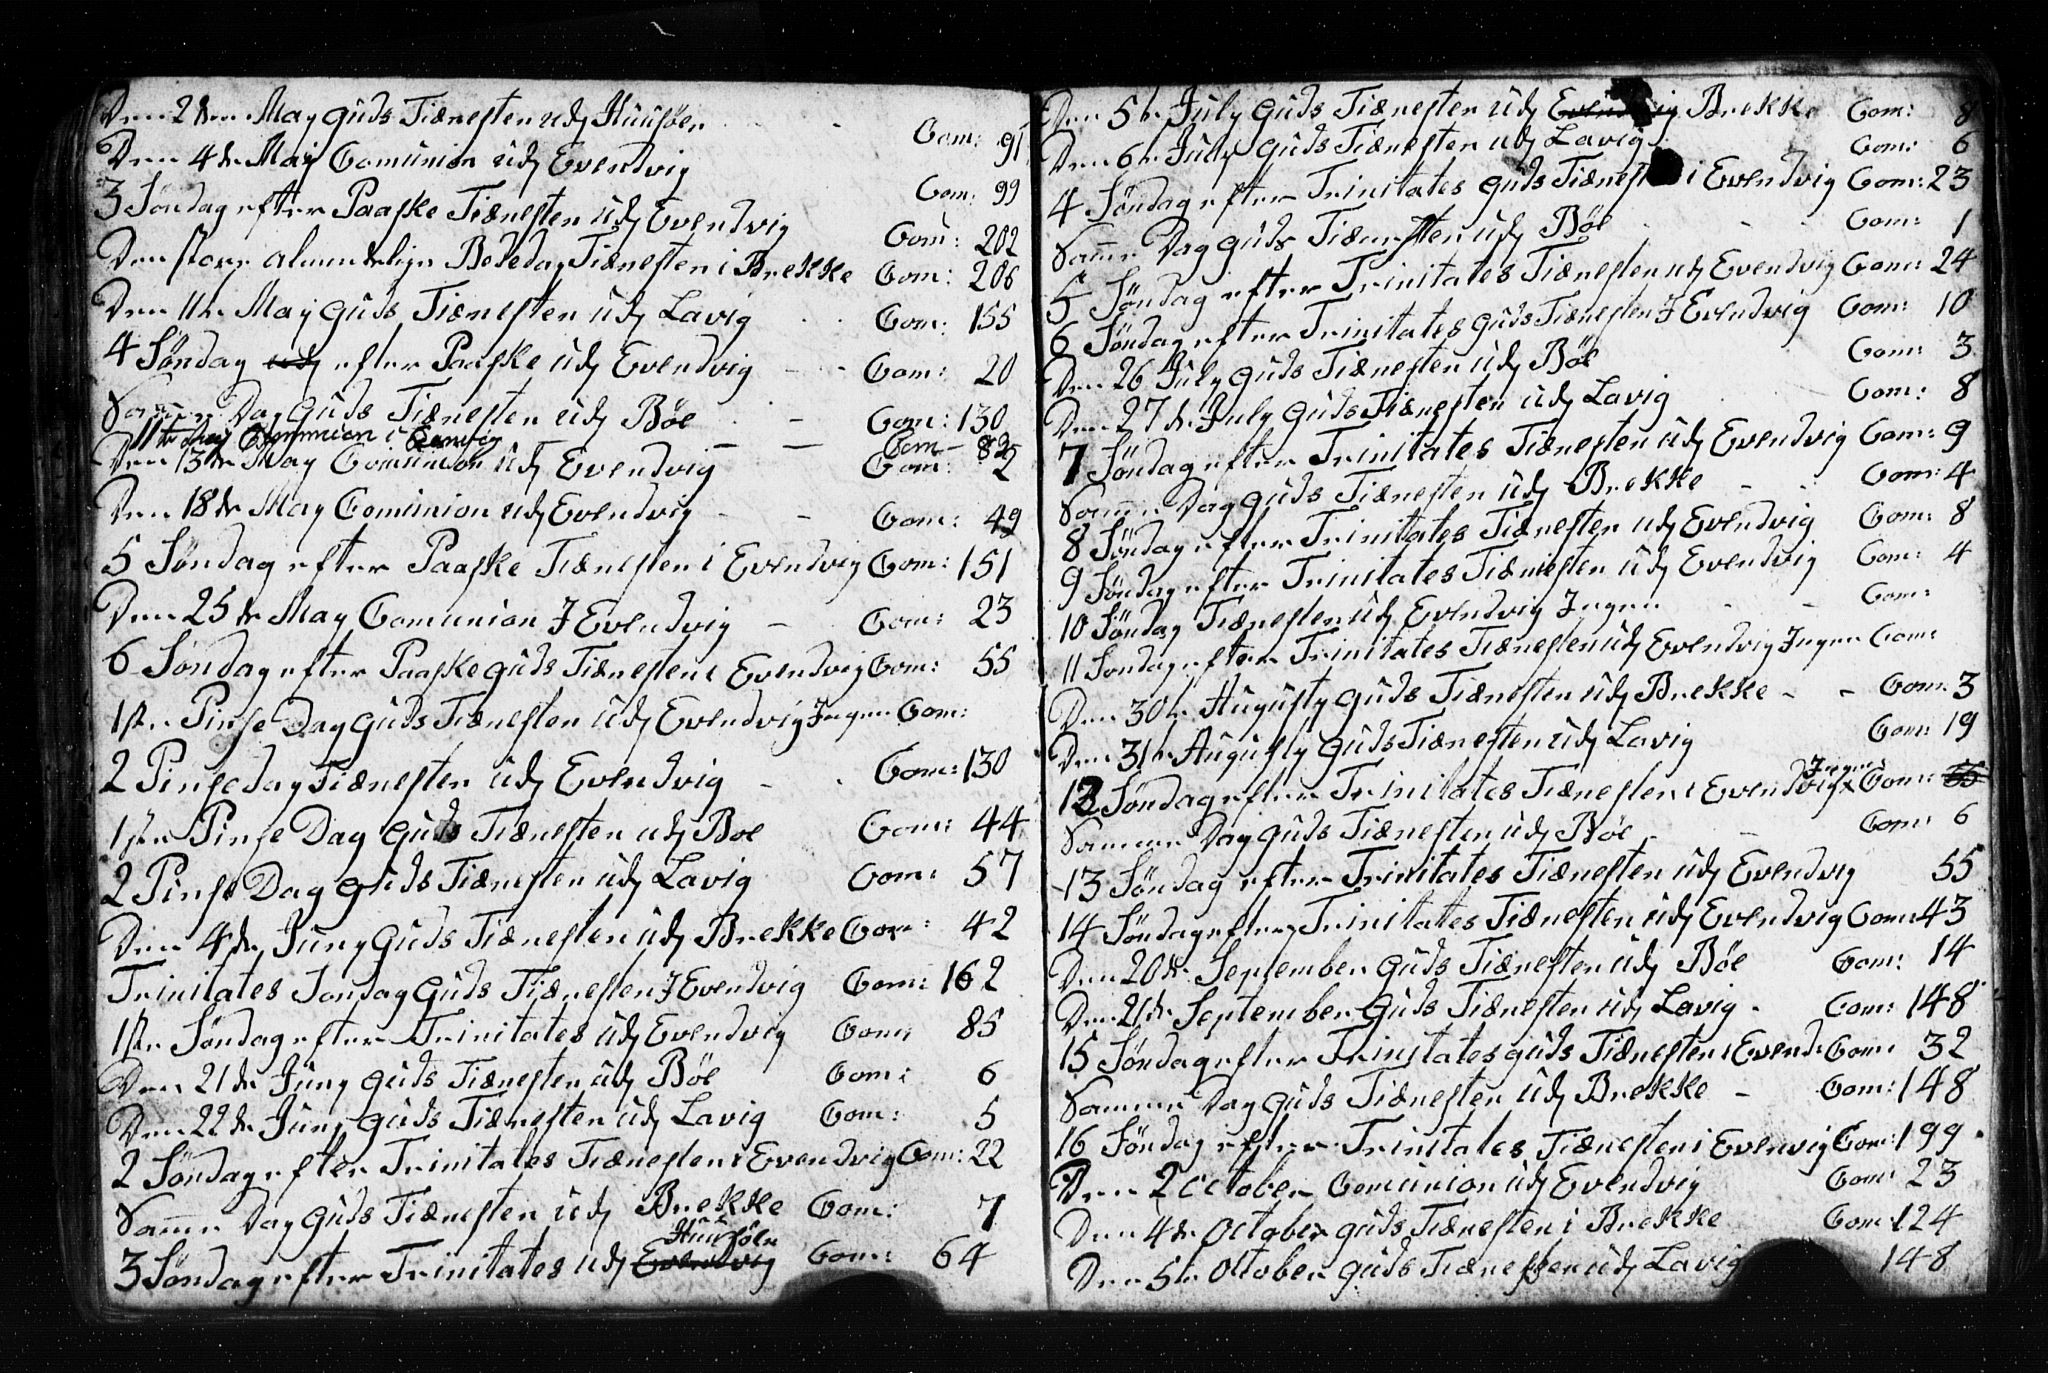 Den 2den May Guds Tiænesten udj Huusøen Com: 91
Den 4de May Comunion udj Evendvig Com: 99
3 Søndag efter Paaske Tiænesten udj Evendvig Com: 202
Den store almindelige Bededag Tiænesten i Brekke Com: 206
Den 11te May Guds Tiænesten udj Lavig Com: 155
4 Søndag udj efter Paaske udj Evendvig Com: 20
Samme Dag Guds Tiænesten udj Böe Com: 130
11te May Communion i Com 82
Den 13de May Comunion udj Evendvig Com: 2
Den 18de May Comunion udj Evendvig Com: 49
5 Søndag efter Paaske Tiænesten i Evendvig Com: 151
Den 25de May Comunion J Evendvig Com: 23
6 Søndag efter Paaske Guds Tiænesten i Evendvig Com: 55
1ste Pinse Dag Guds Tiænesten udj Evendvig Ingen Com:
2 Pinsedag Tiænesten udj Evendvig Com: 130
1ste Pinse Dag Guds Tiænesten udj Böe Com: 44
2 Pinse Dag Guds Tiænesten udj Lavig Com: 57
Den 4de Juny Guds Tiænesten udj Brekke Com: 42
Trinitates Søndag Guds Tiænesten J Evendvig Com: 162
1ste Søndag efter Trinitates udj Evendvig Com: 85
Den 21de Juny Guds Tiænesten udj Böe Com: 6
Den 22de Juny Guds Tiænesten udj Lavig Com: 5
2 Søndag efter Trinitates Tiænesten i Evendvig Com: 22
Samme Dag Guds Tiænesten udj Brekke Com: 7
Huusöen
3 Søndag efter Trinitates udj Evendvig Com: 64
Den 5te July Guds Tiænesten udj Evendvig Brekke Com: 8
Den 6te July Guds Tiænesten udj Lavig Com: 6
4 Søndag efter Trinitates Guds Tiænesten i Evendvig Com: 23
Samme Dag Guds Tiænesten udj Böe Com: 1
5 Søndag efter Trinitates Tiænesten udj Evendvig Com: 24
6 Søndag efter Trinitates Guds Tiænesten J Evendvig Com: 10
Den 26 July Guds Tiænesten udj Böe Com: 3
Den 27de July Guds Tiænesten udj Lavig Com: 8
7 Søndag efter Trinitates Tiænesten udj Evendvig Com: 9
Samme Dag Guds Tiænesten udj Brekke Com: 4
8 Søndag efter Trinitates Tiænesten udj Evendvig Com: 8
9 Søndag efter Trinitates Tiænesten udj Evendvig Com: 4
10 Søndag Tiænesten udj Evendvig Ingen Com:
11 Søndag efter Trinitates Tiænesten udj Evendvig Ingen Com:
Den 30te Augusty Guds Tiænesten udj Brekke Com: 3
Den 31te Augusty Guds Tiænesten udj Lavig Com: 19
Ingen
12 Søndag efter Trinitates Tiænesten i Evendvig Com: 55
Samme Dag Guds Tiænesten udj Böe Com: 6
13 Søndag efter Trinitates Tiænesten udj Evendvig 55
14 Søndag efter Trinitates Tiænesten udj Evendvig Com: 43
Den 20de September Guds Tiænesten udj Böe Com: 14
Den 21de September Guds Tiænesten udj Lavig Com: 148
15 Søndag efter Trinitates Guds Tiænesten i Evend: Com: 32
Samme Dag Guds Tiænesten udj Brekke Com: 148
16 Søndag efter Trinitates Tiænesten i Evenvig Com: 199
Den 2 October Comunion udj Evendvig Com: 23
Den 4de October Guds Tiænesten i Brekke Com: 124
Den 5te October Guds Tiænesten udj Lavig 148